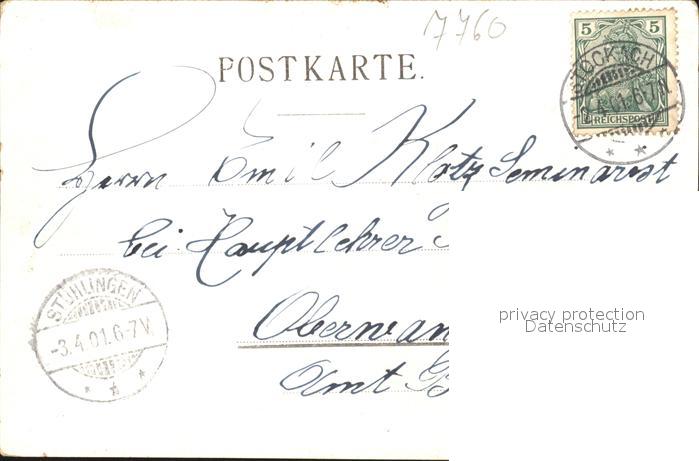 7760
POSTKARTE.
5 5
REICHSPOST
STOCKACH
-2.4.01.6-7N.
Herrn Emil Kotz Seminarist
bei Hauptlehrer
Oberwan
Amt B
STÜHLINGEN
-3.4.01.6-7V.
privacy protection
Datenschutz